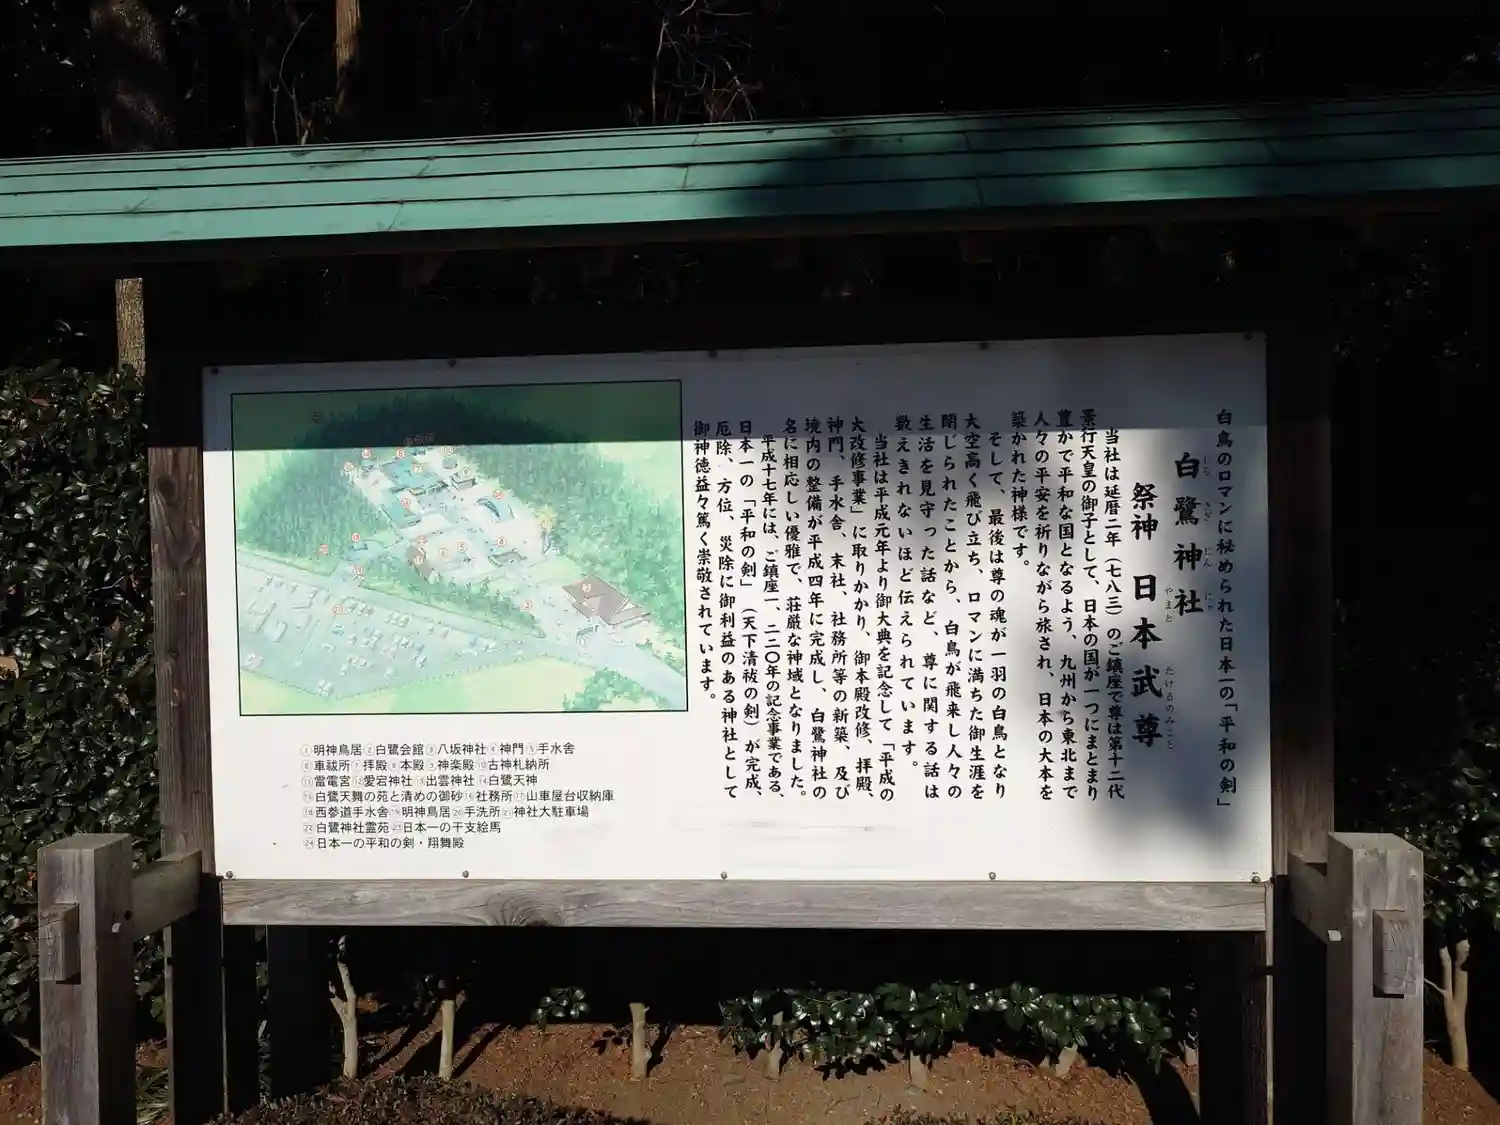 白鳥のロマンに秘められた日本一の「平和の剣」
白鷺神社
しら さぎ じん じゃ
祭神 日本武尊
やまと たけるのみこと
当社は延暦二年（七八三）のご鎮座で尊は第十二代
景行天皇の御子として、日本の国が一つにまとまり
豊かで平和な国となるよう、九州から東北まで
人々の平安を祈りながら旅され、日本の大本を
築かれた神様です。
そして、最後は尊の魂が一羽の白鳥となり
大空高く飛び立ち、ロマンに満ちた御生涯を
閉じられたことから、白鳥が飛来し人々の
生活を見守った話など、尊に関する話は
数えきれないほど伝えられています。
当社は平成元年より御大典を記念して「平成の
大改修事業」に取りかかり、御本殿改修、拝殿、
神門、手水舎、末社、社務所等の新築、及び
境内の整備が平成四年に完成し、白鷺神社の
名に相応しい優雅で、荘厳な神域となりました。
平成十七年には、ご鎮座一、二二〇年の記念事業である、
日本一の「平和の剣」（天下清祓の剣）が完成、
厄除、方位、災除に御利益のある神社として
御神徳益々篤く崇敬されています。
①明神鳥居②白鷺会館③八坂神社④神門⑤手水舎
⑥車祓所⑦拝殿⑧本殿⑨神楽殿⑩古神札納所
⑪雷電宮⑫愛宕神社⑬出雲神社⑭白鷺天神
⑮白鷺天舞の苑と清めの御砂⑯社務所⑰山車屋台収納庫
⑱西参道手水舎⑲明神鳥居⑳手洗所㉑神社大駐車場
㉒白鷺神社霊苑㉓日本一の干支絵馬
㉔日本一の平和の剣・翔舞殿